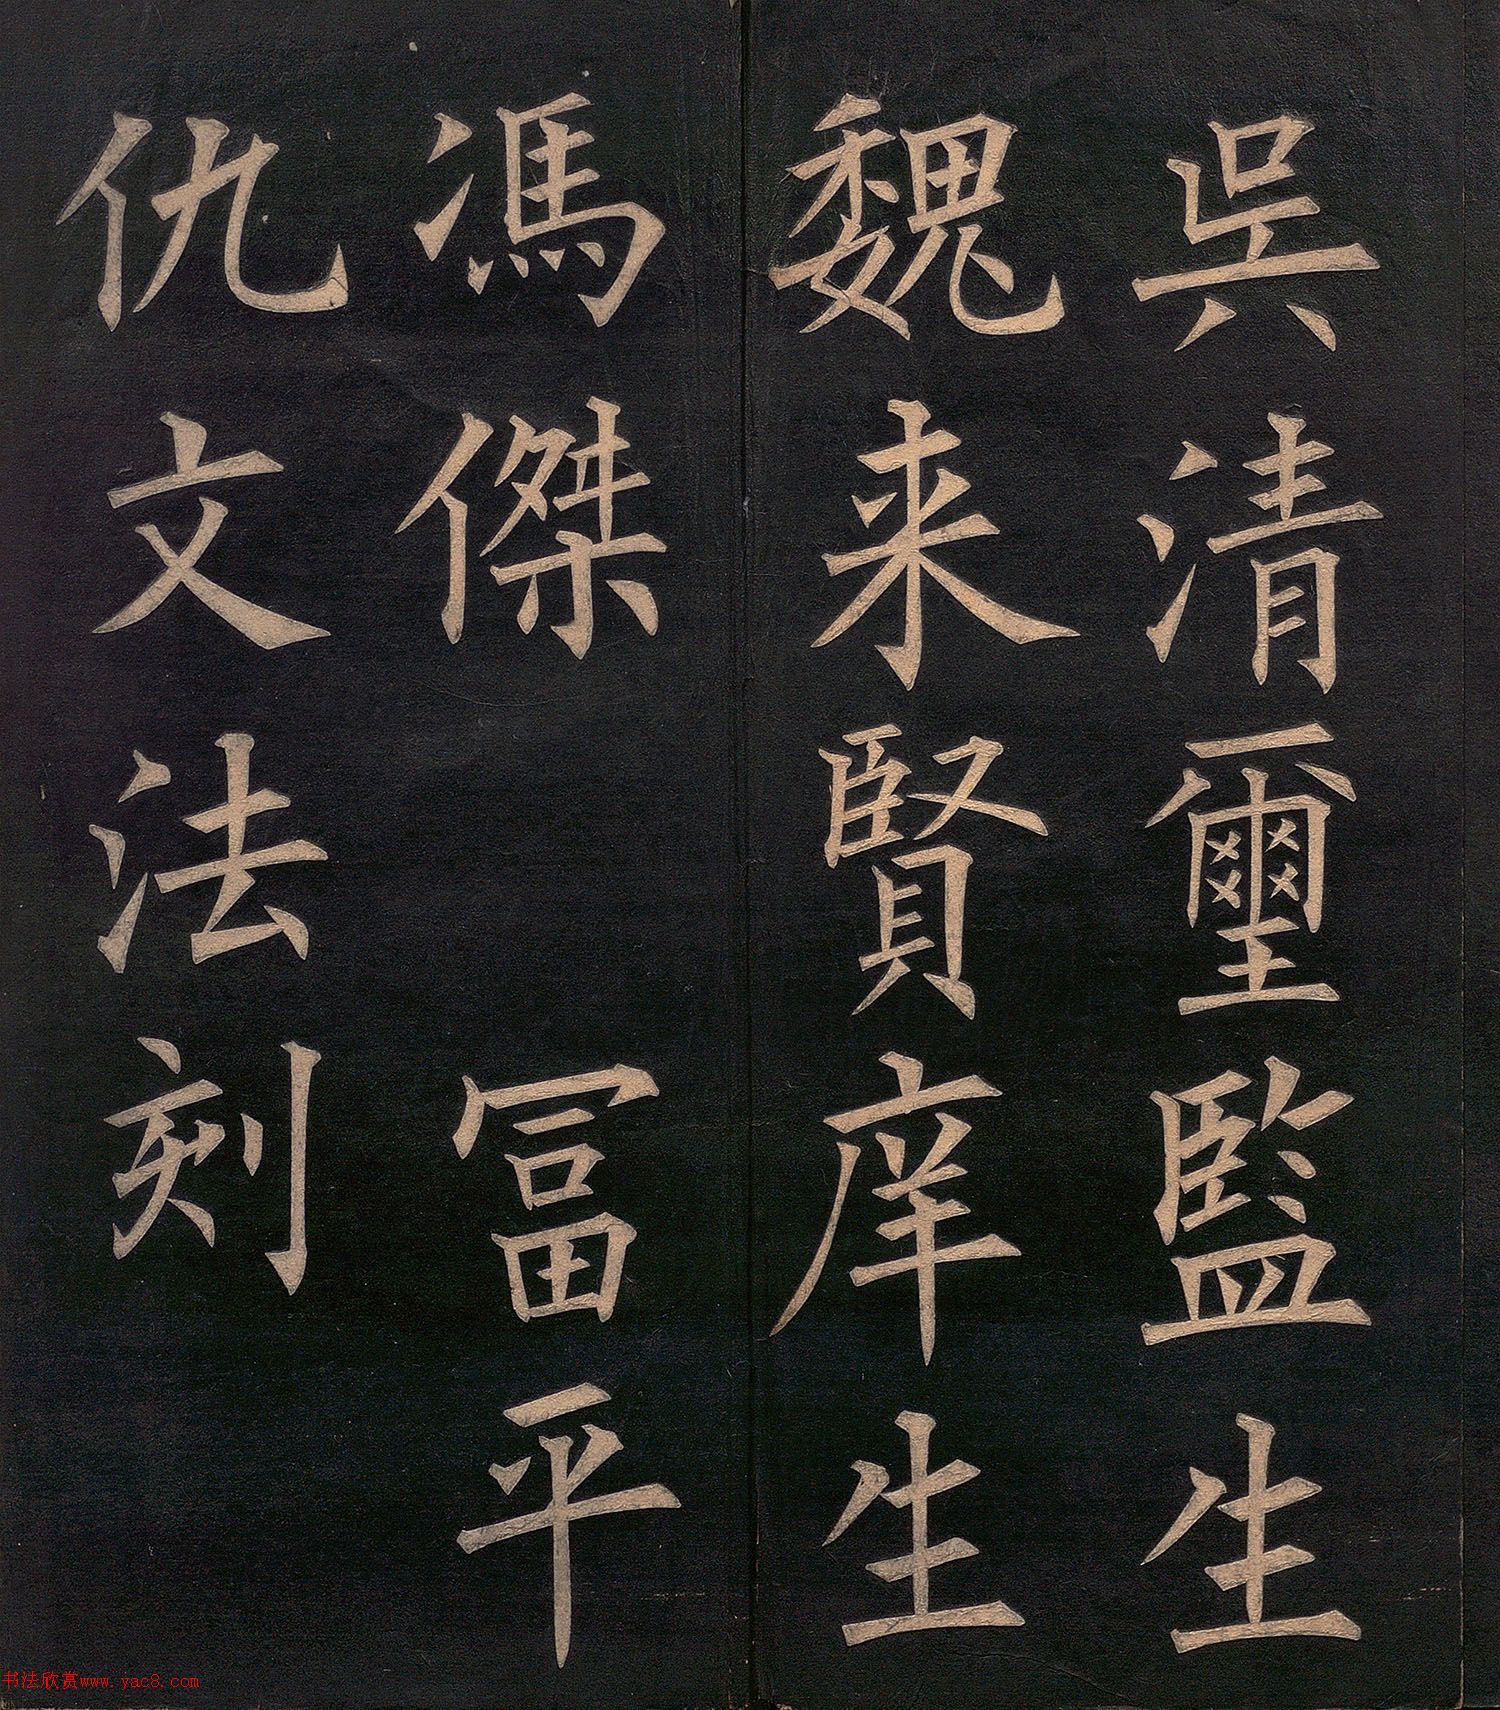 吳清璽監生
魏来賢庠生
馮傑 冨平
仇文法刻
书法欣赏www.yac8.com